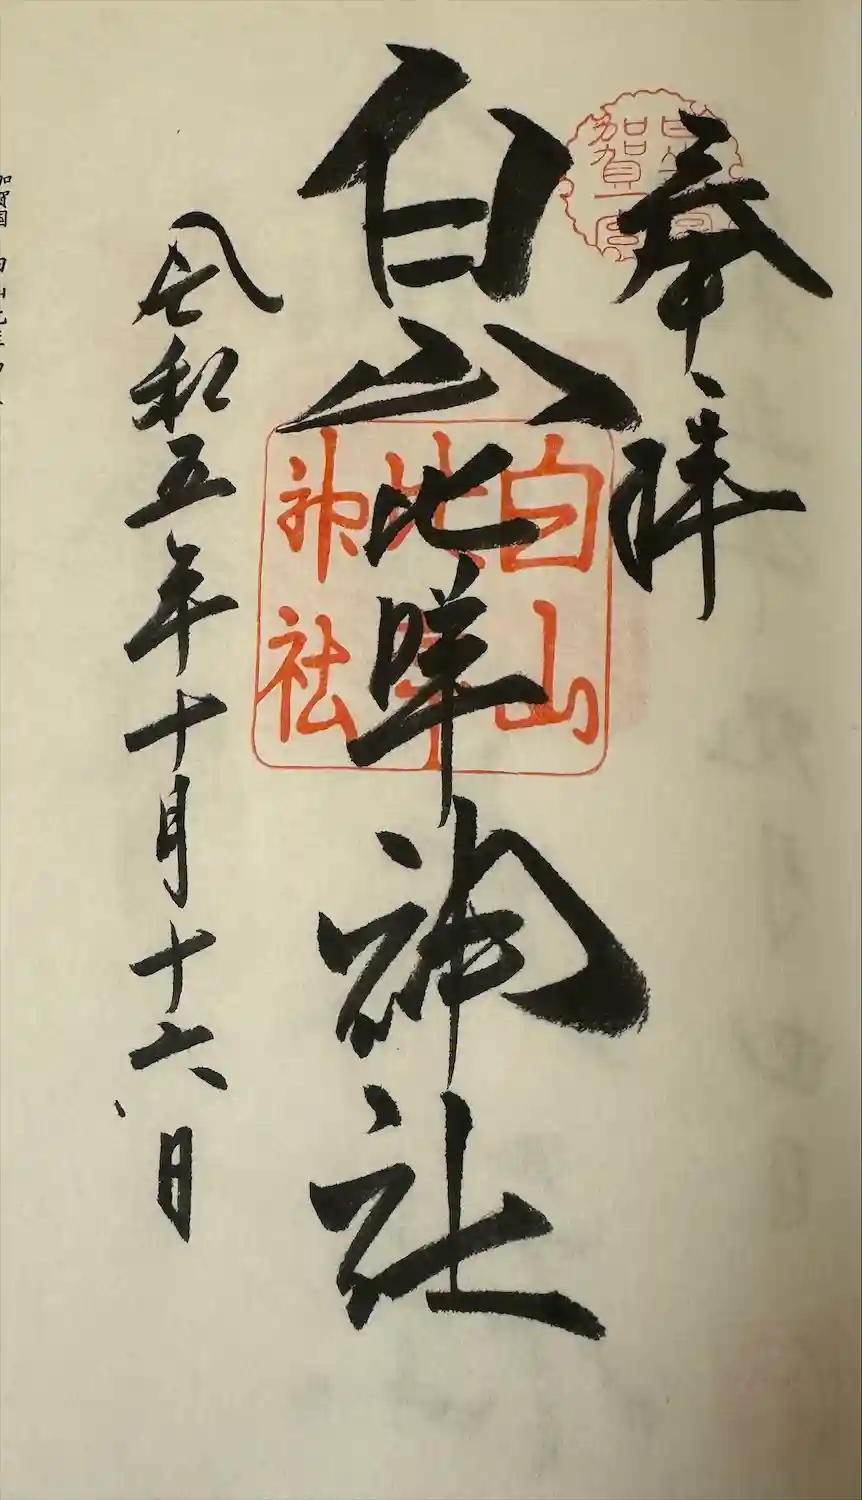 奉拝
加賀一宮
白山比咩神社
白山比咩神社
令和五年十月十六日